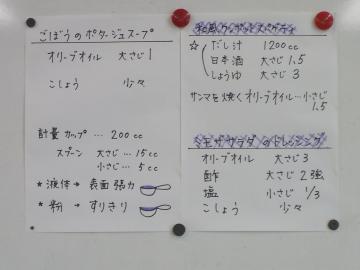 ごぼうのポタージュスープ
オリーブオイル 大さじ1
こしょう 少々
計量カップ … 200cc
スプーン 大さじ … 15cc
小さじ … 5cc
★液体→表面張力
★粉→すりきり
和風
スパゲティ
☆だし汁 1200cc
日本酒 大さじ1.5
しょうゆ 大さじ3
サンマを焼くオリーブオイル…小さじ
1.5
ミモザサラダのドレッシング
オリーブオイル 大さじ3
酢 大さじ2強
塩 小さじ1/3
こしょう 少々